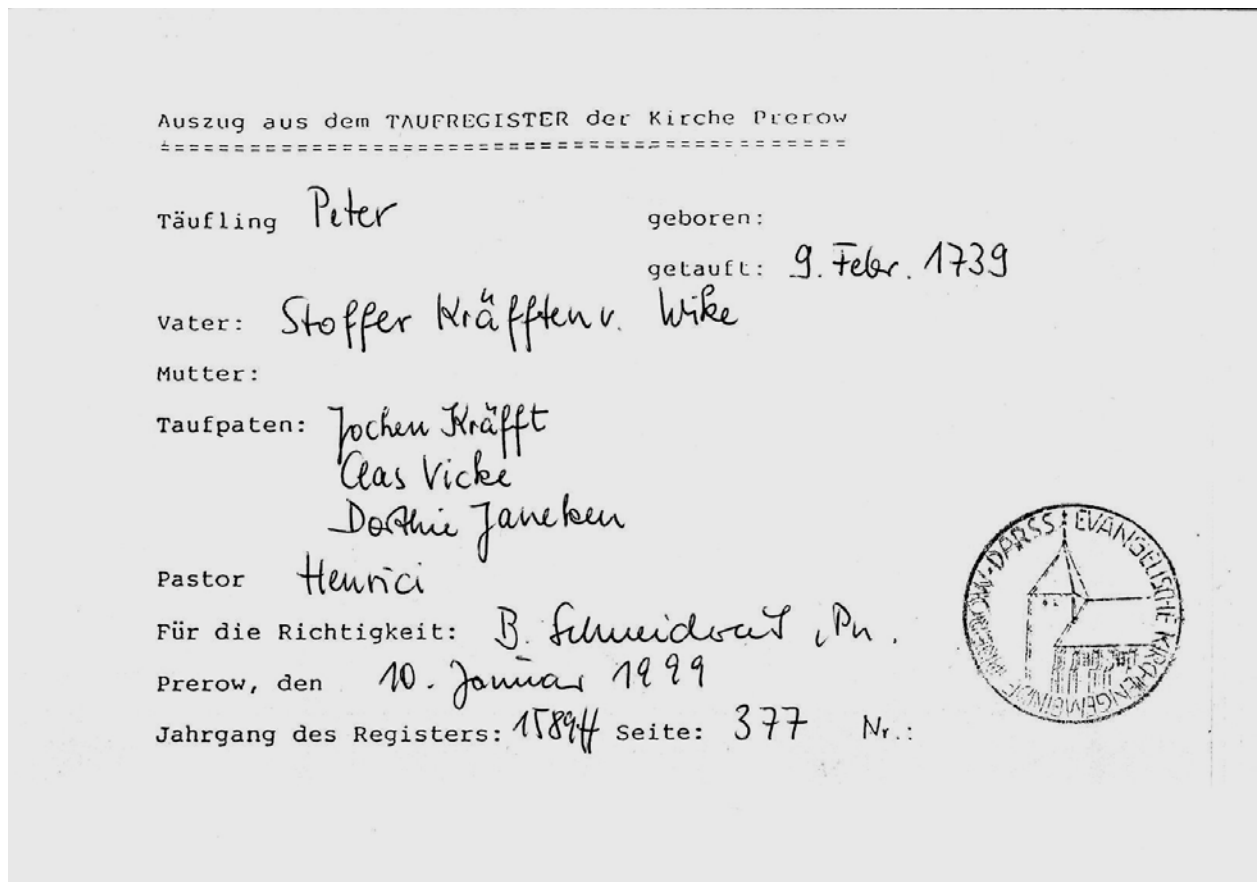 Auszug aus dem TAUFREGISTER der Kirche Prerow
==============================================
Täufling Peter geboren:
getauft: 9. Febr. 1739
Vater: Stoffer Kräfften v. Wike
Mutter:
Taufpaten: Jochen Kräfft
Clas Vicke
Dorthie Janeken
Pastor Henrici
Für die Richtigkeit: B. , Pn.
Prerow, den 10. Januar 1999
Jahrgang des Registers: 1589ff Seite: 377 Nr.:
PREROW·DARSS·EVANGELISCHE KIRCHENGEMEINDE